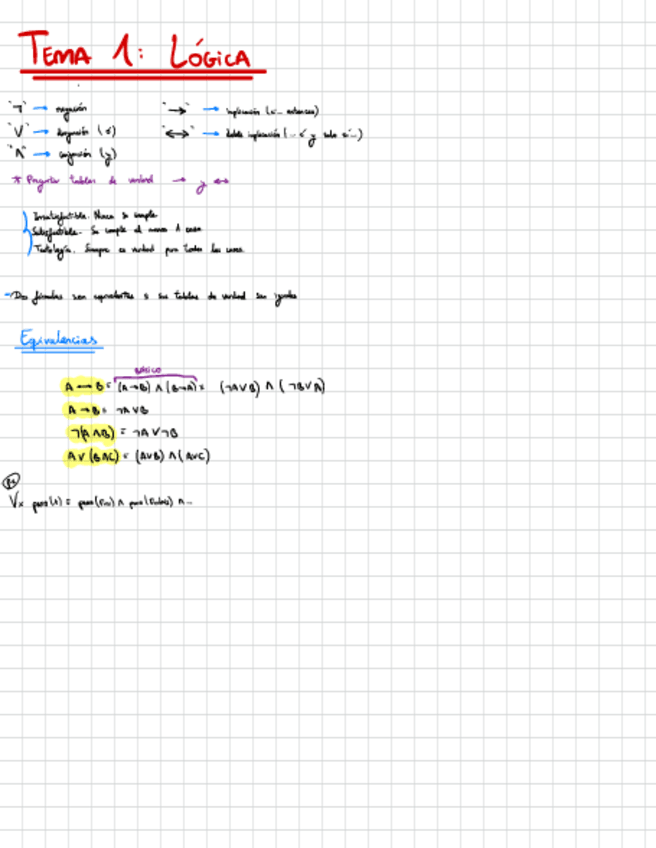 TEMA 1: LÓGICA
"¬" → negación
"∨" → disyunción (ó)
"∧" → conjunción (y)
"→" → implicación (si... entonces)
"↔" → doble implicación (... sí y solo sí...)
* Preguntar tablas de verdad → y ↔
Insatisfactible. Nunca se cumple
Satisfactible. Se cumple al menos 1 caso
Tautología. Siempre es verdad para todos los casos
→ Dos fórmulas son equivalentes si sus tablas de verdad son iguales
Equivalencias
BÁSICO
A ↔ B = (A→B) ∧ (B→A) = (¬A∨B) ∧ (¬B∨A)
A → B = ¬A∨B
¬(A∧B) = ¬A∨¬B
A∨(B∧C) = (A∨B) ∧ (A∨C)
Ex